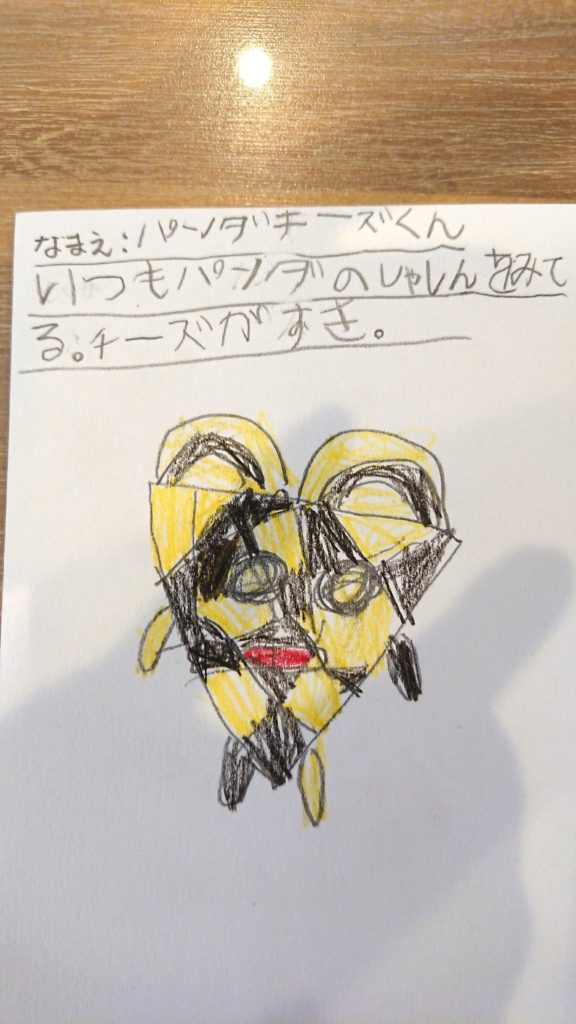 なまえ:パンダチーズくん
いつもパンダのしゃしんをみて
る。チーズがすき。